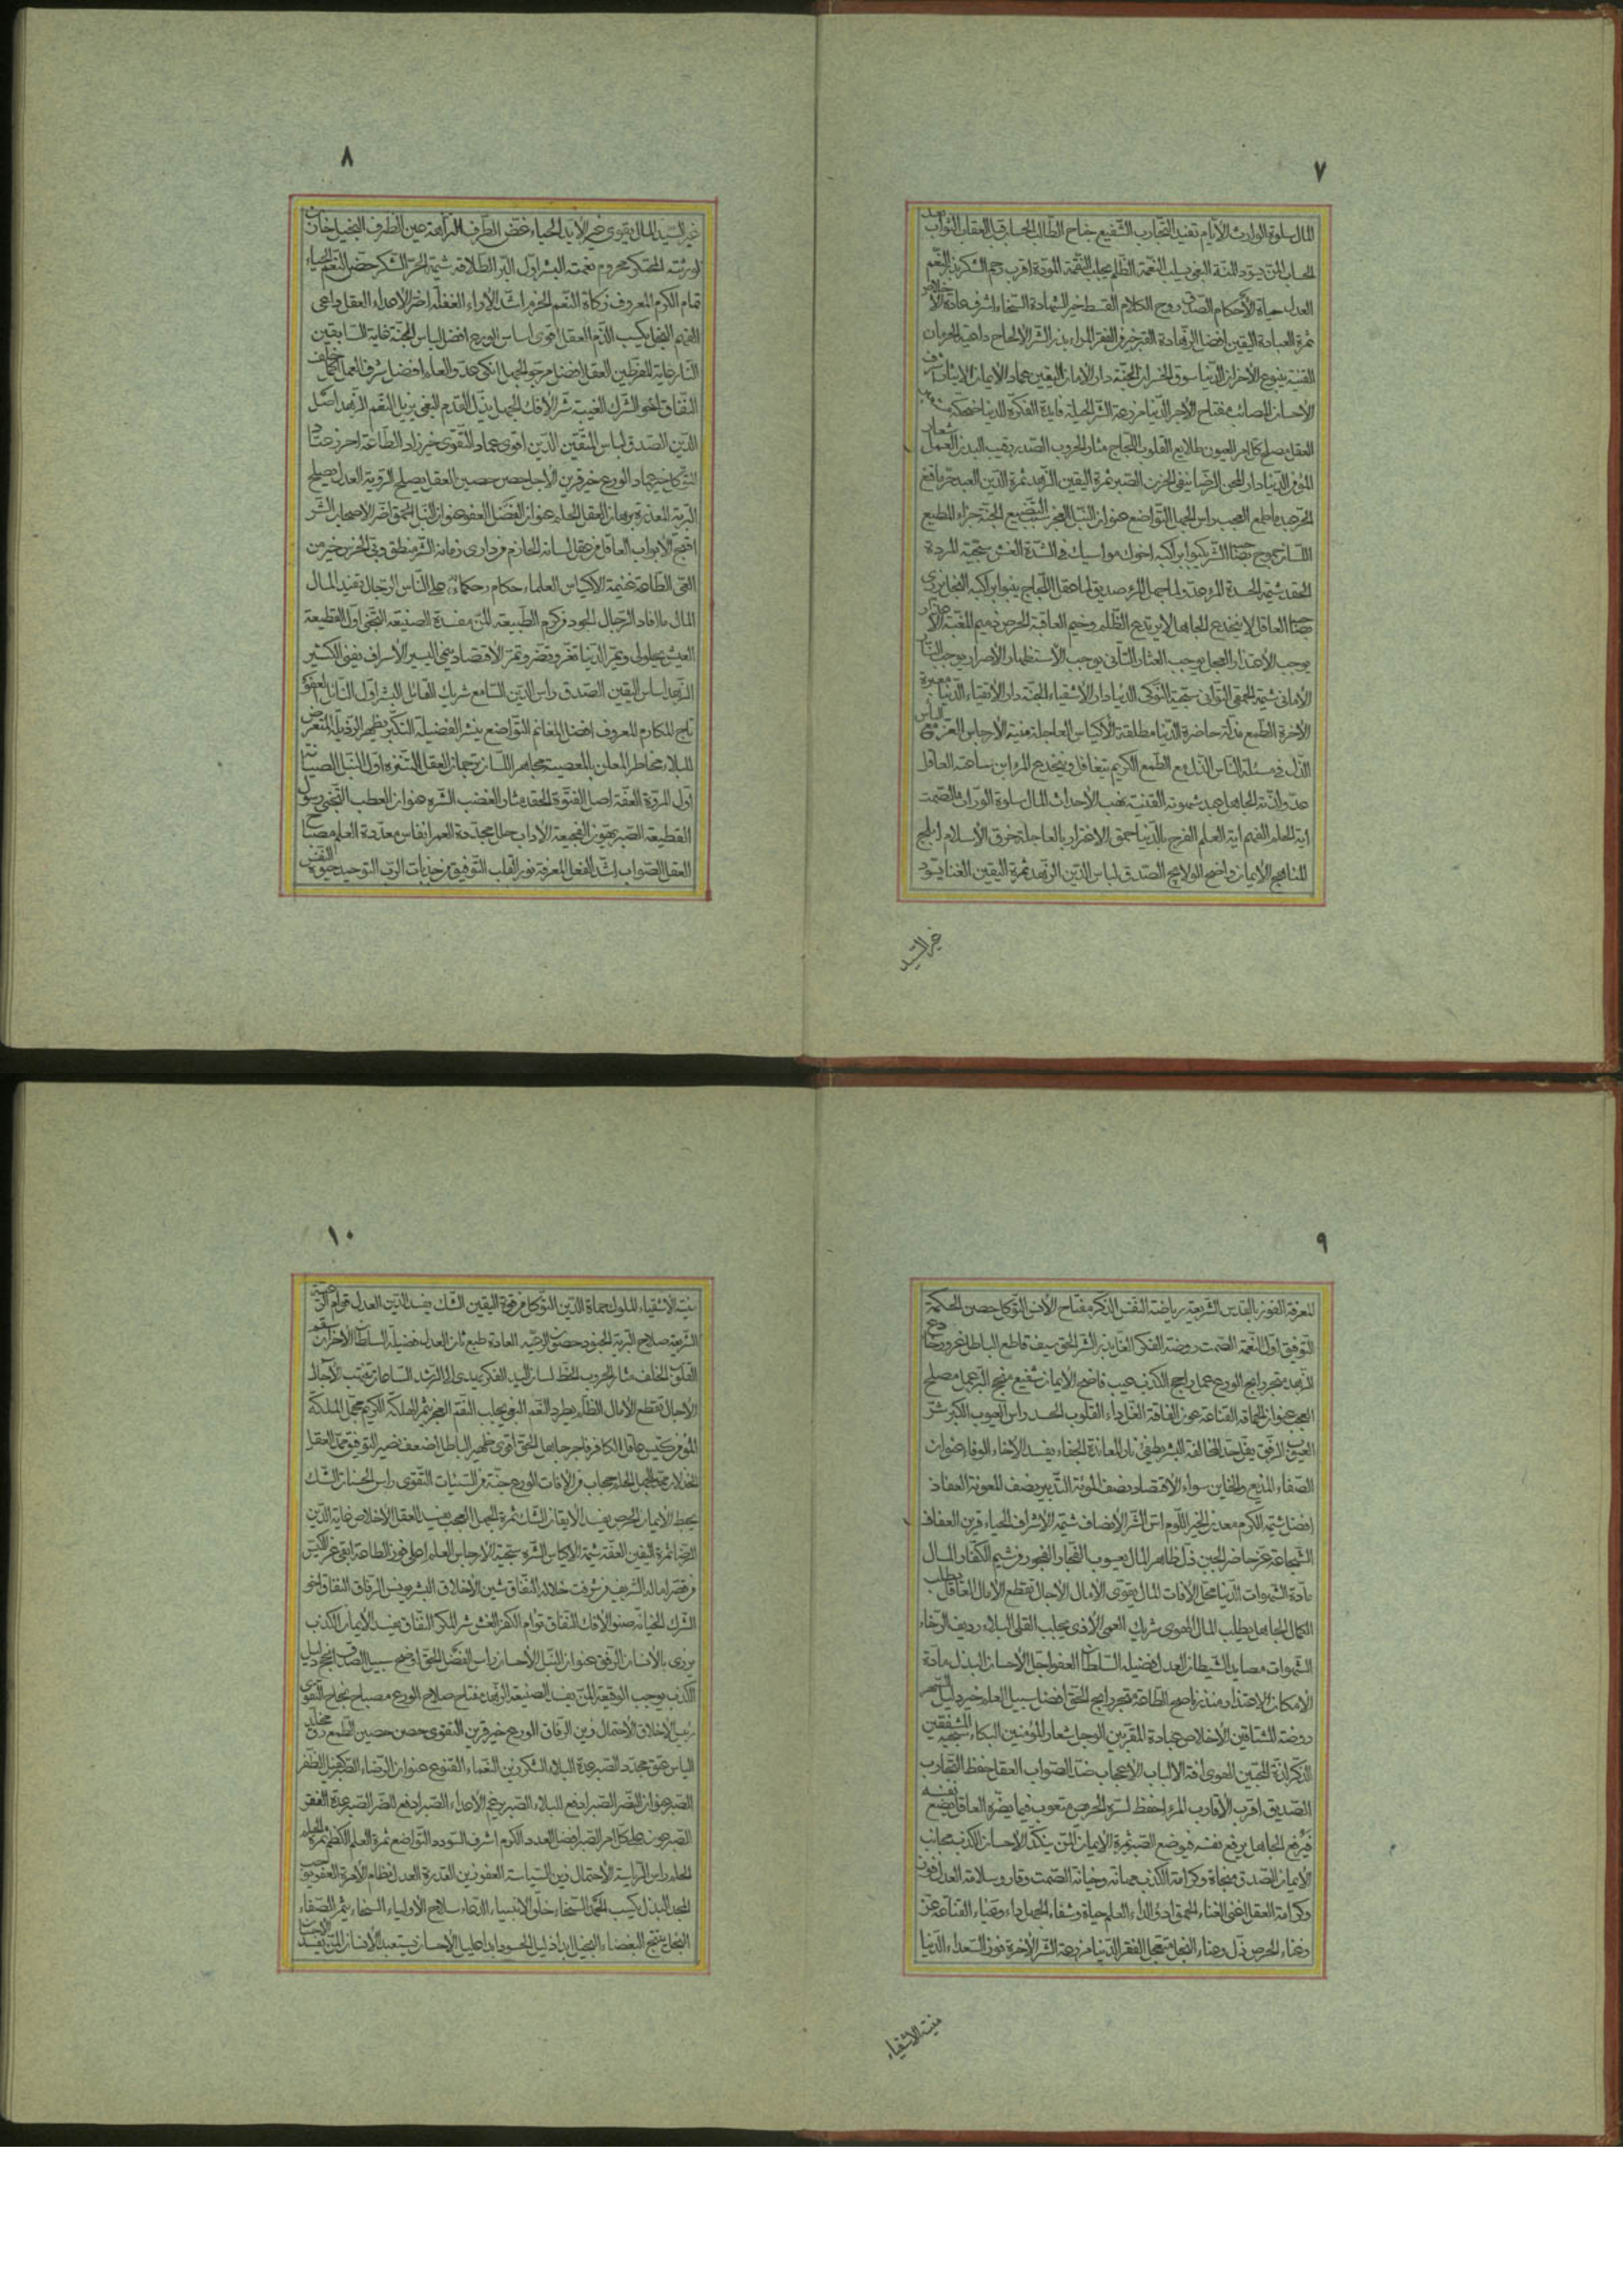 ٧
المال سلوة الوارث الأيام تفيد التجارب الشفيع جناح الطالب الحساب قبل العقاب الثواب بعد
الحساب المن يسود المنة البغي يسلب النعمة الظلم يجلب النقمة المودة اقرب رحم الشكر يزيد النعم
العدل حياة الأحكام الصدق روح الكلام القسط خير الشهادة السخاء اشرف عادة الأخلاص
ثمرة العبادة اليقين افضل الزهادة القبر خير من الفقر المراء بذر الشر الالحاح داعية الحرمان
القنية ينبوع الأحزان الدنيا سوق الخسران الجنة دار الأمان اليقين عماد الأيمان الايثار اشرف
الأحسان المصائب مفتاح الأجر الدنيا مزرعة الشر الحيلة فايدة الفكرة الدنيا ضحكة
العقل يصلح كل امر العيون طلايع القلوب اللجاج مثار الحروب الصدر رقيب البدن العمل شعار
المؤمن الدنيا دار المحن الرضا ينفي الحزن الصبر ثمرة اليقين الزهد ثمرة الدين العبد حر ما قنع
الحر عبد ما طمع العجب راس الجهل التواضع عنوان النبل العجز سبب التضييع الجنة جزاء المطيع
اللسان جموح الشر يكبو براكبه اخوك مواسيك في الشدة الغش سجية المردة
الحقد شيمة الحسدة المرء عدو لما جهل المرء صديق لما عقل اللجاج ينبو براكبه البخل يزري
العاقل لا ينخدع الجاهل لا يرتدع الظلم وخيم العاقبة الحرص ذميم المغبة
يوجب الأعتذار العجل يوجب العثار التأني يوجب الأستظهار الأصرار يوجب النار
الأماني شيمة الحمقى التواني سجية النوكى الدنيا دار الأشقياء الجنة دار الأتقياء الدنيا معبرة
الأخرة الطمع مذلة حاضرة الدنيا مطلقة الأكياس العاجلة منية الأرجاس العز مع الياس
الذل في مسئلة الناس الذل مع الطمع الكريم يتغافل وينخدع المرء ابن ساعته العاقل
عدو لذته الجاهل عبد شهوته القنية نهب الأحداث المال سلوة الوراث الصمت
اية الحلم الفهم اية العلم الفرح بالدنيا حمق الاغترار بالعاجلة خرق الأسلام ابلج
المناهج الأيمان واضح الولايج الصدق لباس الدين الزهد ثمرة اليقين الغنا يسود
غير السيد
٨
غير السيد المال يقوي غير الأيد الحياء غض الطرف النزاهة عين الظرف البخيل خازن
لورثته المحتكر محروم نعمته البشر اول البر الطلاقة شيمة الحر الشكر حصن النعم الحياء
تمام الكرم المعروف زكاة النعم الحزم اشد الأراء الغفلة اضر الأعداء العقل داعي
الفهم البخل يكسب الذم العقل اقوى اساس الورع افضل لباس الجنة غاية السابقين
النار غاية المفرطين العقل افضل مرجو الجهل انكى عدو العلم افضل شرف العمل اكمل خلف
النفاق اخو الشرك الغيبة شر الأفك الجهل يزل القدم البغي يزيل النعم الزهد اصل
الدين الصدق لباس المتقين الدين اقوى عماد التقوى خير زاد الطاعة احرز عتاد
التوكل خير عماد الورع خير قرين الأجل حصن حصين العقل يصلح الروية العدل يصلح
البرية المعذرة برهان العقل الحلم عنوان الفضل العفو عنوان النبل الحمق اضر الأصحاب الشر
اقبح الأبواب العاقل من عقل لسانه الحازم من دارى زمانه الشر منطق وبي الحزن خير من
الغى الطاعة غنيمة الأكياس العلماء حكام على الناس الرجال تفيد المال
المال ما افاد الرجال الجود من كرم الطبيعة المن مفسدة الصنيعة التجني اول القطيعة
العيش يحلو ويمر الدنيا تغر وتضر وتمر الأقتصاد ينمي اليسير الأسراف يفني الكثير
الزهد اساس اليقين الصدق راس الدين السامع شريك القائل البشر اول النائل العفو
تاج المكارم المعروف افضل المغانم التواضع ينشر الفضيلة التكبر يظهر الرذيلة المتعرض
للبلاء مخاطر المعلن بالمعصية مجاهر اللسان ترجمان العقل التنزه اول النبل الصيانة
اول المروة العفة اصل الفتوة الحقد مثار الغضب الشره عنوان العطب التجني رسول
القطيعة الصبر يهون الفجيعة الأداب حلل مجددة العمر انفاس معددة العلم مصباح
العقل الصواب اشد الفعل المعرفة نور القلب التوفيق من جذبات الرب التوحيد حيوة النفس
٩
المعرفة الفوز بالقدس الشريعة رياضة النفس الذكر مفتاح الأنس التوكل حصن الحكمة
التوفيق اول النعمة الصمت روضة الفكر الغل بذر الشر الحق سيف قاطع الباطل غرور خادع
الزهد متجر رابح الورع عمل راجح الكذب عيب فاضح الأيمان شفيع منجح البر عمل مصلح
العجب عنوان الحماقة القناعة عون الفاقة الغل داء القلوب الحسد راس العيوب الكبر شر
العيوب الرفق يفل حد المخالفة البشر يطفئ نار المعاندة الجفاء يفسد الأخاء الوفاء عنوان
الصفاء المذيع والخاين سواء الأقتصاد نصف المؤنة التدبير نصف المعونة العفاف
افضل شيمة الكرم معدن الخير اللؤم اس الشر الأنصاف شيمة الأشراف الحياء قرين العفاف
الشجاعة عز حاضر الجبن ذل ظاهر المال يعسوب الفجار الفجور من شيم الكفار المال
مادة الشهوات الدنيا محل الأفات المال يقوى الأمال الأجال تقطع الأمال العاقل يطلب
الكمال الجاهل يطلب المال الهوى شريك العمى الأذى يجلب القلى البلاء رديف الرخاء
الشهوات مصايد الشيطان العدل فضيلة السلطان العفو اجل الأحسان البذل مادة
الأمكان الاعتذار منذر ناصح الطاعة متجر رابح الحق افضل سبيل العلم خير دليل السهر
روضة المشتاقين الأخلاص عبادة المقربين الوجل شعار المؤمنين البكاء سجية المشفقين
الذكر لذة المحبين الهوى افة الالباب الأعجاب ضد الصواب العقل حفظ التجارب
الصديق اقرب الأقارب المرء احفظ لسره الحريص متعوب فيما يضره العاقل يضع نفسه
فيرفع الجاهل يرفع نفسه فيوضع الصبر ثمرة الأيمان المن ينكد الأحسان الكذب مجانب
الأيمان الصدق منجاة وكرامة الكذب مهانة وخيانة الصمت وقار وسلامة العدل فوز
وكرامة العقل اغنى الغناء الحمق ادوأ الداء العلم حياة وشفاء الجهل داء وعياء القناعة عز
وغناء الحرص ذل وعناء البخل متعجل الفقر الدنيا مزرعة الشر الأخرة فوز السعداء الدنيا
منية الاشقياء
١٠
منية الأشقياء الملوك حماة الدين التوكل من قوة اليقين الشك يفسد الدين العدل قوام الرعية
الشريعة صلاح البرية الجنود حصون الرعية العادة طبع ثان العدل فضيلة السلطان الأحزان سقم
القلوب الخلف مثار الحروب الخط لسان اليد الفكر يهدي الى الرشد الساعات تنتهب الآجال
الأجال تقطع الأمال الظلم يطرد النعم البغي يجلب النقم العجز يثمر الهلكة الكريم يجمل الملكة
المؤمن كيس عاقل الكافر فاجر جاهل الحق اقوى ظهير الباطل اضعف نصير التوفيق ممد العقل
الخذلان ممد الجهل الحلم حجاب من الأفات الورع جنة من السيئات التقوى راس الحسنات الشك
يحبط الأيمان الحرص يفسد الأيقان الشك ثمرة الجهل العجب يفسد العقل الأخلاص غاية الدين
الرضا ثمرة اليقين العفة شيمة الأكياس الشره سجية الأرجاس العلم اعلى فوز الطاعة ابقى عز الكيس
من قصر اماله الشريف من شرفت خلاله النفاق شين الأخلاق البشر يونس الرفاق النفاق اخو
الشرك الخيانة صنو الأفك النفاق توام الكفر الغش شر المكر النفاق يفسد الأيمان الكذب
يزري بالأنسان الرفق عنوان النبل الأحسان راس الفضل الحق اوضح سبيل الصدق انجح دليل
الكذب يوجب الوقيعة المن يفسد الصنيعة الزهد مفتاح صلاح الورع مصباح نجاح التقوى
رئيس الأخلاق الأحتمال زين الرفاق الورع خير قرين التقوى حصن حصين الطمع رق مخلد
الياس عتق مجدد الصبر عدة البلاء الشكر زين النعماء القنوع عنوان الرضاء الصبر كفيل الظفر
الصبر عنوان النصر الصبر ادفع للبلاء الصبر يرغم الأعداء الصبر ادفع للضر الصبر عدة الفقر
الصبر عون على كل امر الصبر افضل العدد الكرم اشرف السودد التواضع ثمرة العلم الكظم ثمرة الحلم
الحلم راس الرياسة الأحتمال زين السياسة العفو زين القدرة العدل نظام الأمرة العفو يوجب
المجد البذل يكسب الحمد السخاء خلق الانبياء الدعاء سلاح الأولياء السخاء يثمر الصفاء
البخل ينتج البغضاء البخيل ابدا ذليل الحسود ابدا عليل الأحسان يستعبد الأنسان المن يفسد الأحسان